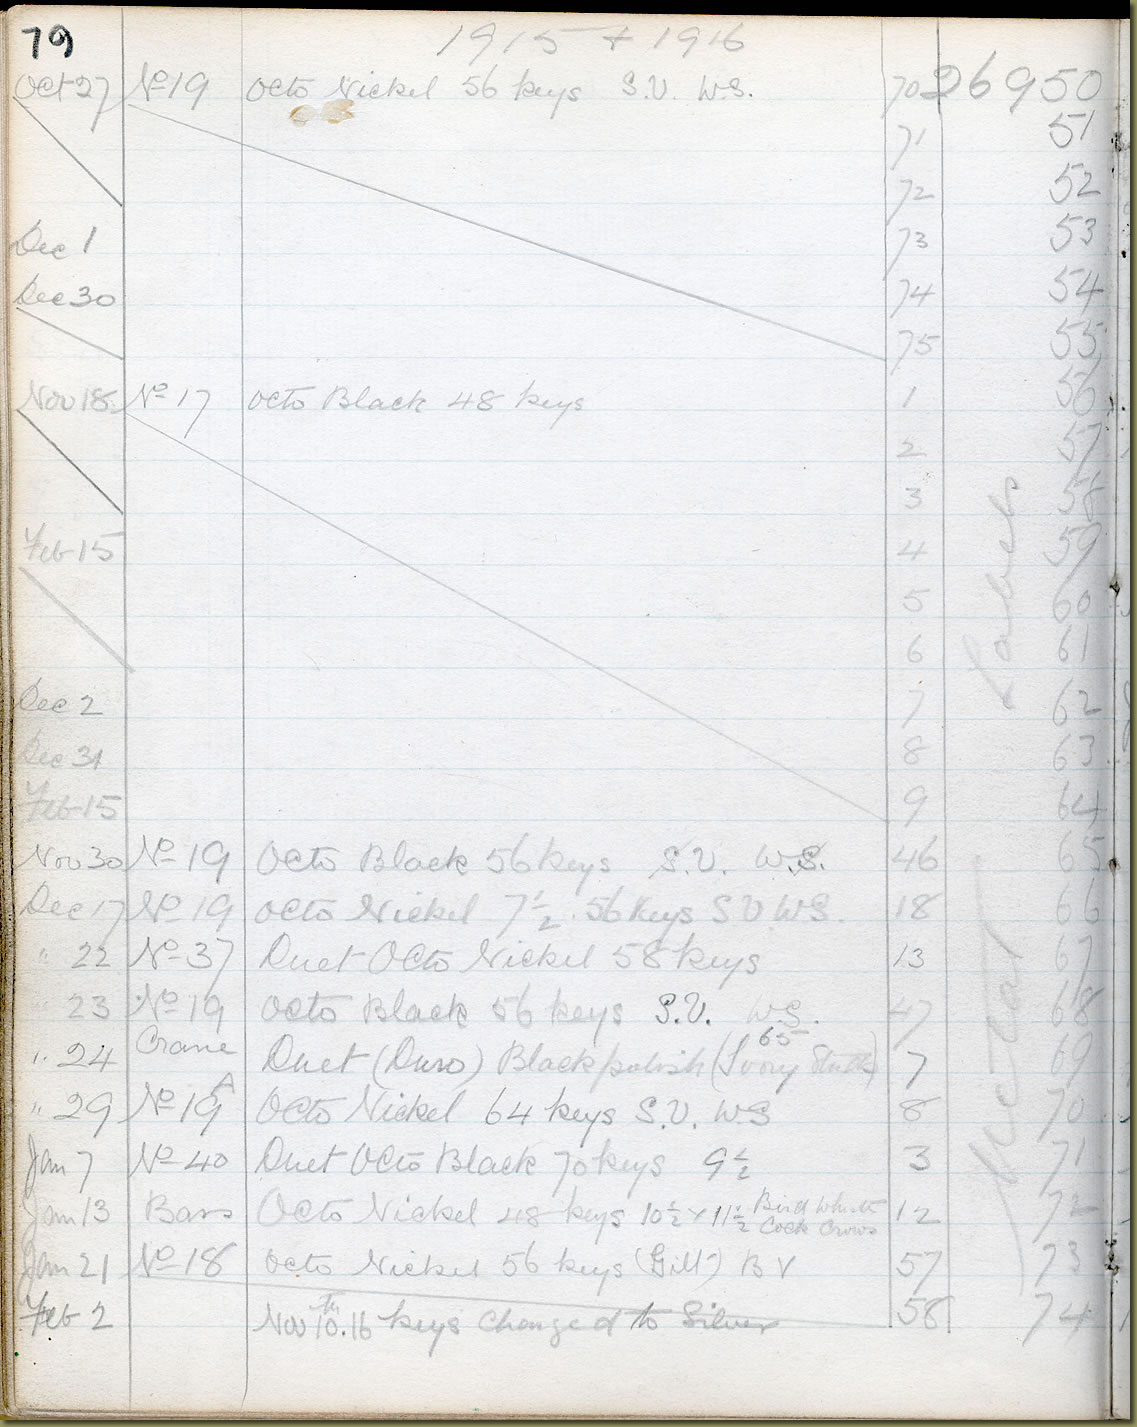 79
1915 + 1916
Oct 27 No 19 Octo Nickel 56 keys S.V. W.S. 70 26950
71 51
72 52
Dec 1 73 53
Dec 30 74 54
75 55
Nov 18 No 17 Octo Black 48 keys 1 56
2 57
3 58
Feb 15 4 59
5 60
6 61
Dec 2 7 62
Dec 31 8 63
Feb 15 9 64
Labels
Nov 30 No 19 Octo Black 56 keys S.V. W.S. 46 65
Dec 17 No 19 Octo Nickel 7 1/2 56 keys S V W S. 18 66
" 22 No 37 Duet Octo Nickel 58 keys 13 67
" 23 No 19 Octo Black 56 keys S.V. W.S. 47 68
" 24 Crane Duet (Duro) Black polish (65 Ivory Studs) 7 69
" 29 No 19 A Octo Nickel 64 keys S.V. W S 8 70
Jan 7 No 40 Duet Octo Black 70 keys 9 1/2 3 71
Jan 13 Bass Octo Nickel 48 keys 10 1/2 x 11 1/2 Bird Whistle Cock Crows 12 72
Jan 21 No 18 Octo Nickel 56 keys (Gilt) B V 57 73
Feb 2 Nov 10th. 16 keys changed to Silver 58 74
Metal